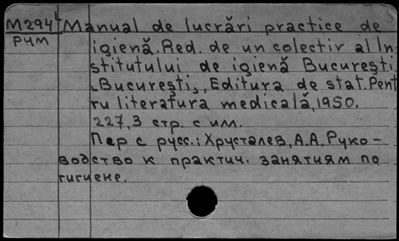 M294 Manual de lucrări practice de
Рум igienă. Red. de un colectiv al In
stitutului de igienă București
"București", Editura de stat. Pent
ru literatura medicală, 1950.
227,3 стр. с илл.
Пер с русс.: Хрусталев, А.А. Руко-
водство к практич. занятиям по
гигиене.